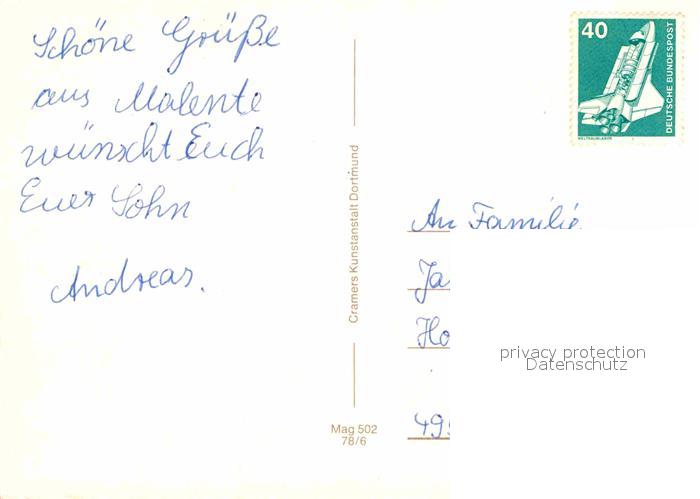 Schöne Grüße
aus Malente
wünscht Euch
Euer Sohn
Andreas.
Cramers Kunstanstalt Dortmund
Mag 502
78/6
40
DEUTSCHE BUNDESPOST
WELTRAUMLABOR
An Familie
Ja
Ho
privacy protection
Datenschutz
49